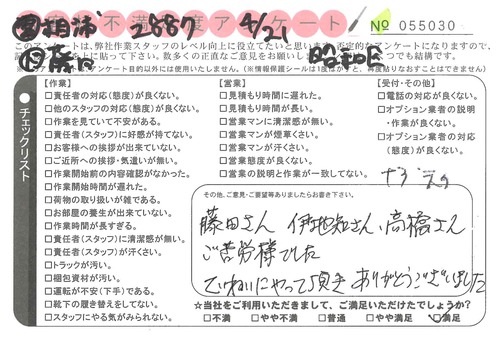 不満度アンケート
2887
4/21
昭和区
№ 055030
このアンケートは、弊社作業スタッフのレベル向上に役立てたいと思います。否定的なアンケートになりますので、
下さい。数多くの正直なご意見をお願いします。
※アンケート目的以外には使用いたしません。(※情報保護シールは1度はがすと、再度貼りなおすことはできません)
チェックリスト
【作業】
□責任者の対応(態度)が良くない。
□他のスタッフの対応(態度)が良くない。
□作業を見ていて不安がある。
□責任者(スタッフ)に好感が持てない。
□お客様への挨拶が出来ていない。
□ご近所への挨拶・気遣いが無い。
□作業開始前の内容確認がなかった。
□作業開始時間が遅れた。
□荷物の取り扱いが雑である。
□お部屋の養生が出来ていない。
□作業時間が長すぎる。
□責任者(スタッフ)に清潔感が無い。
□責任者(スタッフ)が汗くさい。
□トラックが汚い。
□梱包資材が汚い。
□運転が不安(下手)である。
□靴下の履き替えをしてない。
□スタッフにやる気がみられない。
【営業】
□見積もり時間に遅れた。
□見積もり時間が長い。
□営業マンに清潔感が無い。
□営業マンが煙草くさい。
□営業マンが汗くさい。
□営業態度が良くない。
□営業の説明と作業が一致してない。
【受付・その他】
□電話の対応が良くない。
□オプション業者の説明
・作業が良くない。
□オプション業者の対応
(態度)が良くない。
その他、ご意見・ご要望等ありましたらお書き下さい。
藤田さん 伊地知さん、高橋さん
ご苦労様でした
ていねいにやって頂き ありがとうございました
☆当社をご利用いただきまして、ご満足いただけたでしょうか?
□不満 □やや不満 □普通 □やや満足 □満足